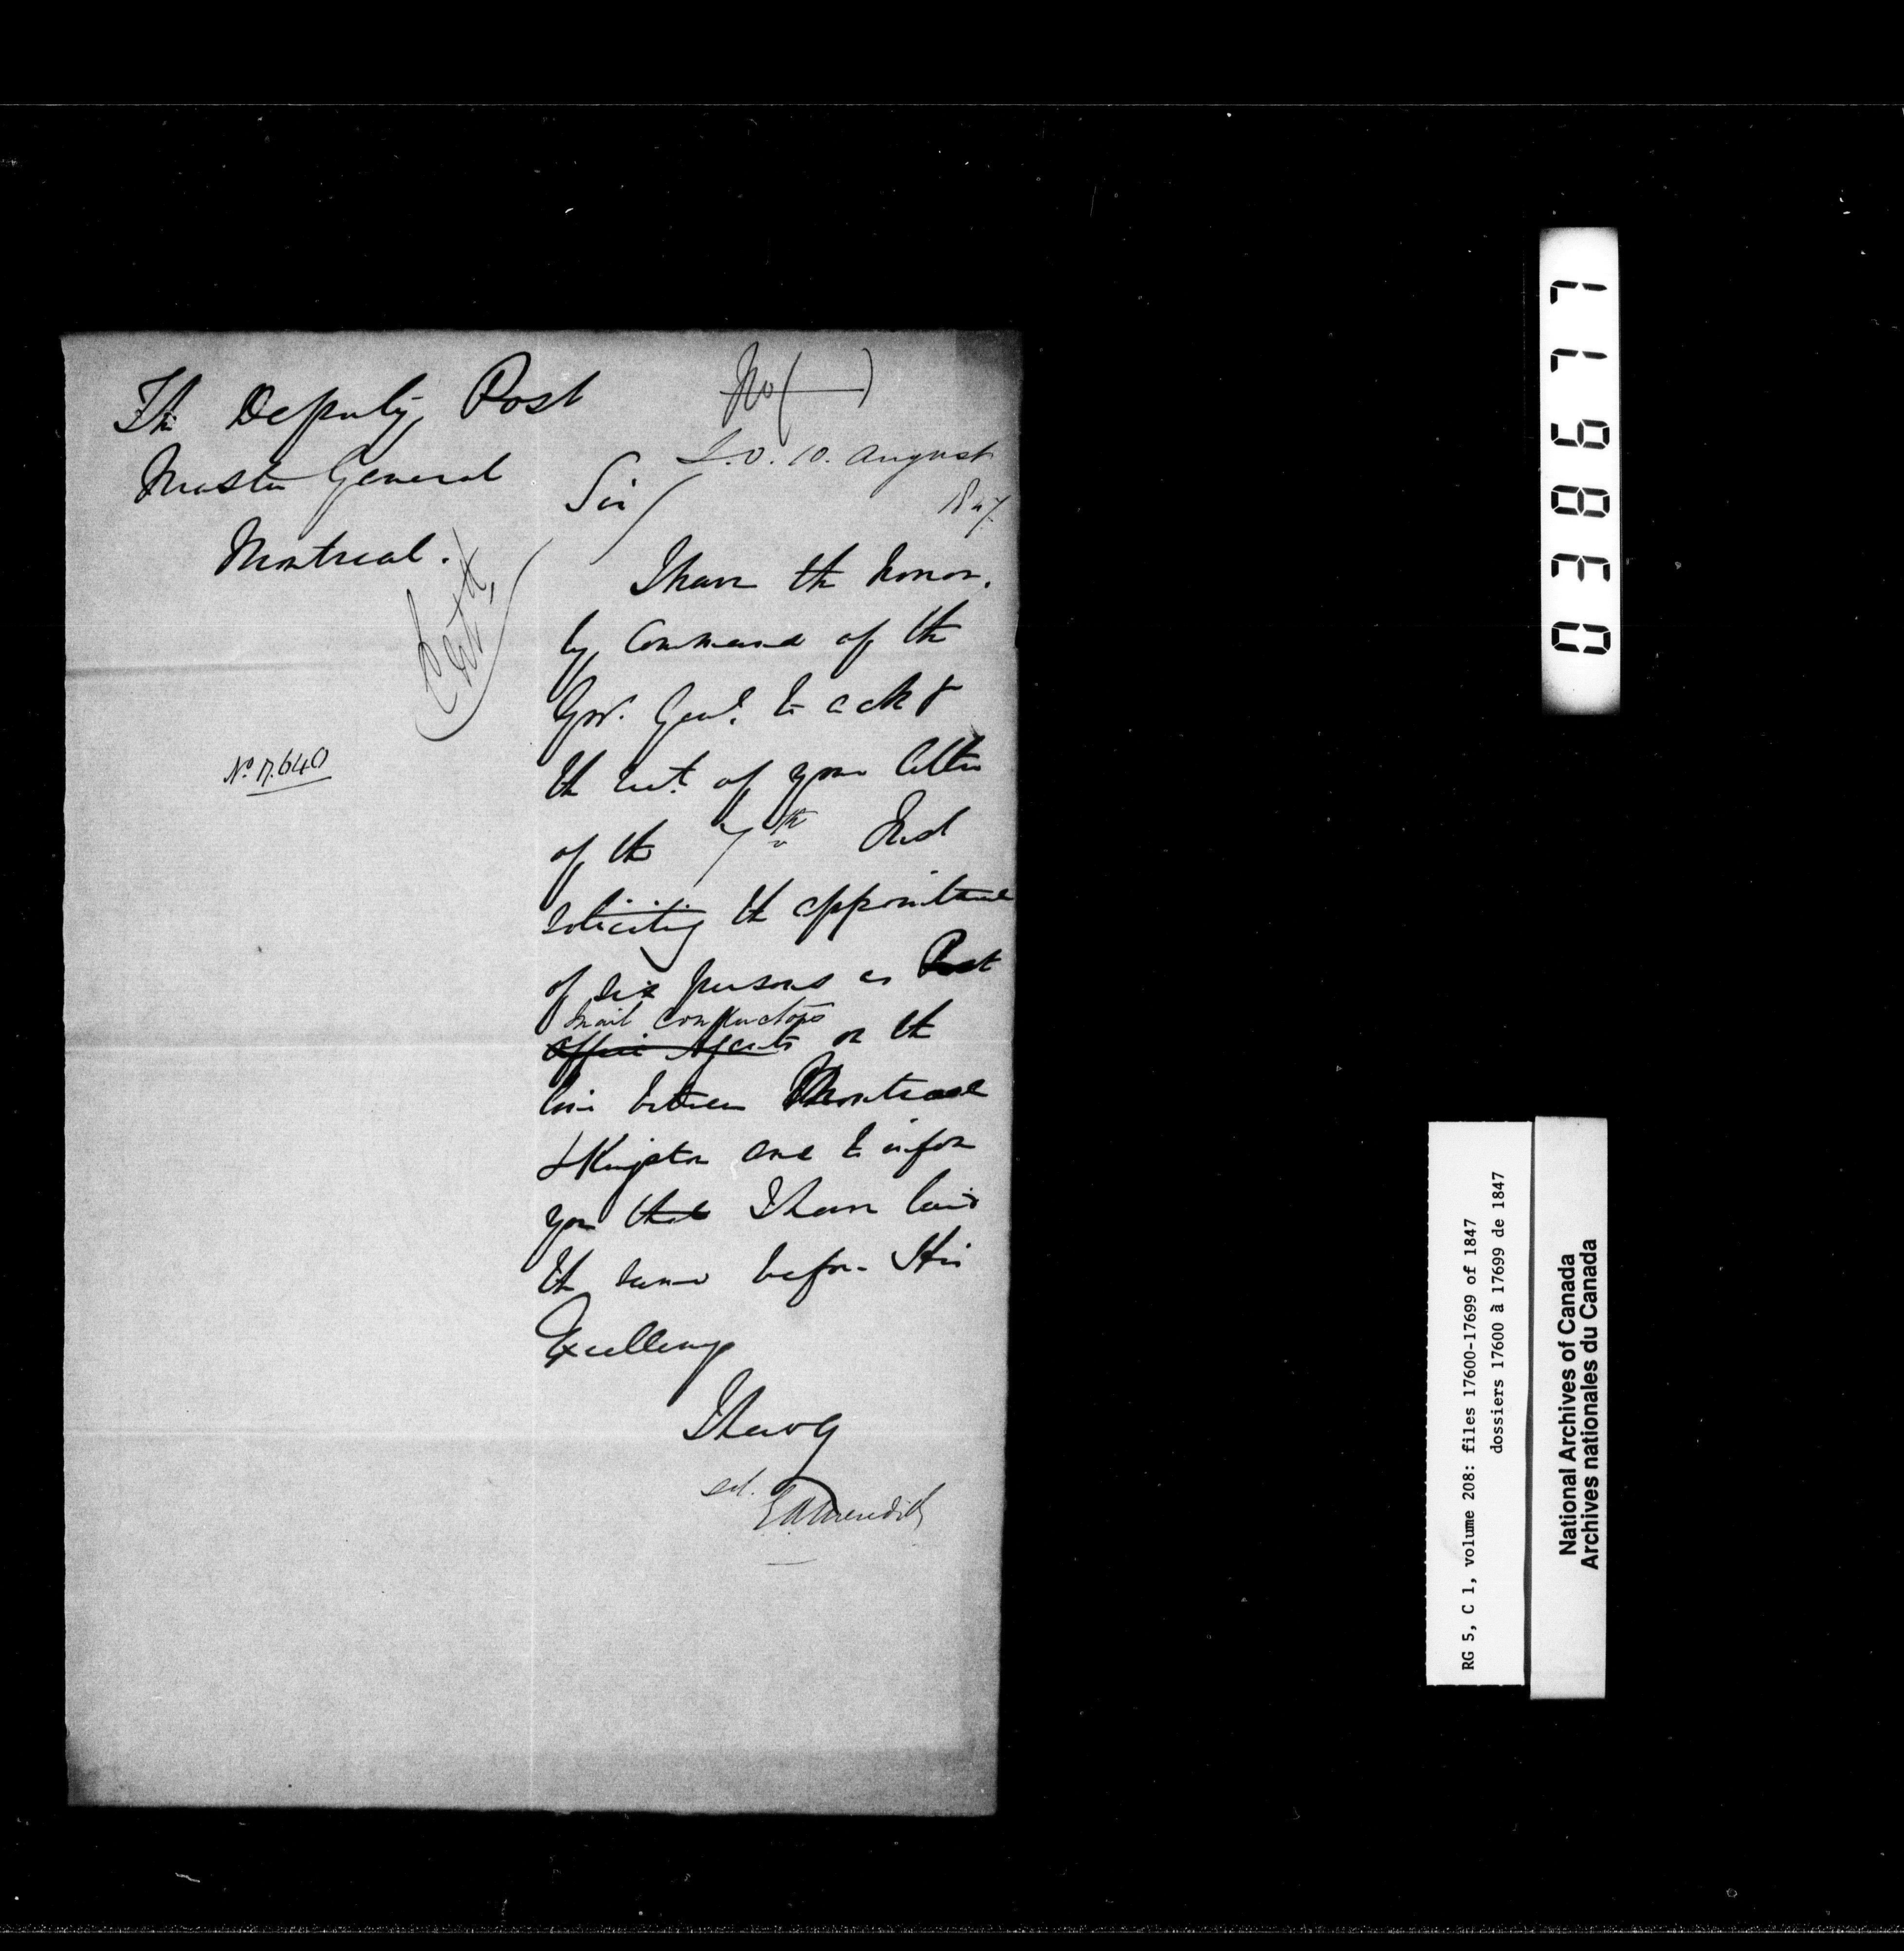 The Deputy Post
Master General
Montreal.
No 17.640
No (—)
S.O. 10. August
1847.
Sir
I have the honor.
by Command of the
Gov. Genl. to ack &
the rect. of your letter
of the 7th Inst
soliciting the appointment
of six persons as Post
Mail Conductors
Office Agents on the
line between Montreal
& Kingston and to inform
you that I have laid
the same before His
Excellency
I have
sd. E A Meredith
038677
RG 5, C 1, volume 208: files 17600-17699 of 1847
dossiers 17600 à 17699 de 1847
National Archives of Canada
Archives nationales du Canada